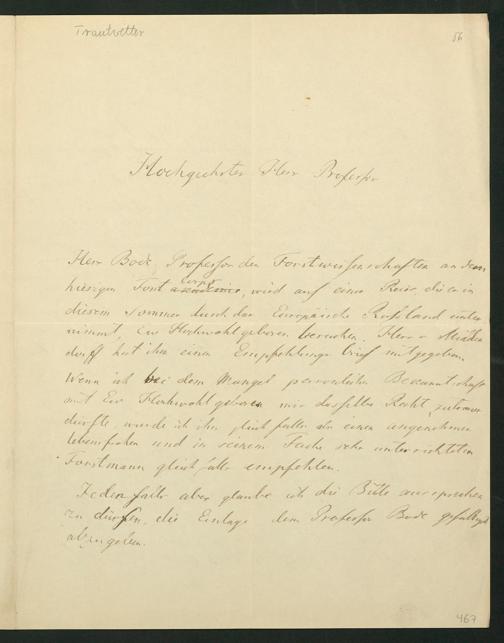 Trautvetter
56
Hochgeehrter Herr Professor
Herr Bode, Professor der Forstwissenschaften an dem
hiesigen Forst corps, wird auf einer Reise, die er in
diesem Sommer durch das Europäische Rußland unter
nimmt, Ew Hochwohlgeboren besuchen. Herr v Midden
dorff hat ihm einen Empfehlungs brief mitgegeben.
Wenn ich bei dem Mangel persönlicher Bekanntschaft
mit Ew Hochwohlgeboren mir dasselbe Recht zutrauen
dürfte, würde ich ihn gleichfalls als einen angenehmen
lebensfrohen und in seinem Fache sehr unterrichteten
Forstmann gleichfalls empfehlen.
Jedenfalls aber glaube ich die Bitte aussprechen
zu dürfen, die Einlage dem Professor Bode gefälligst
abzugeben.
467